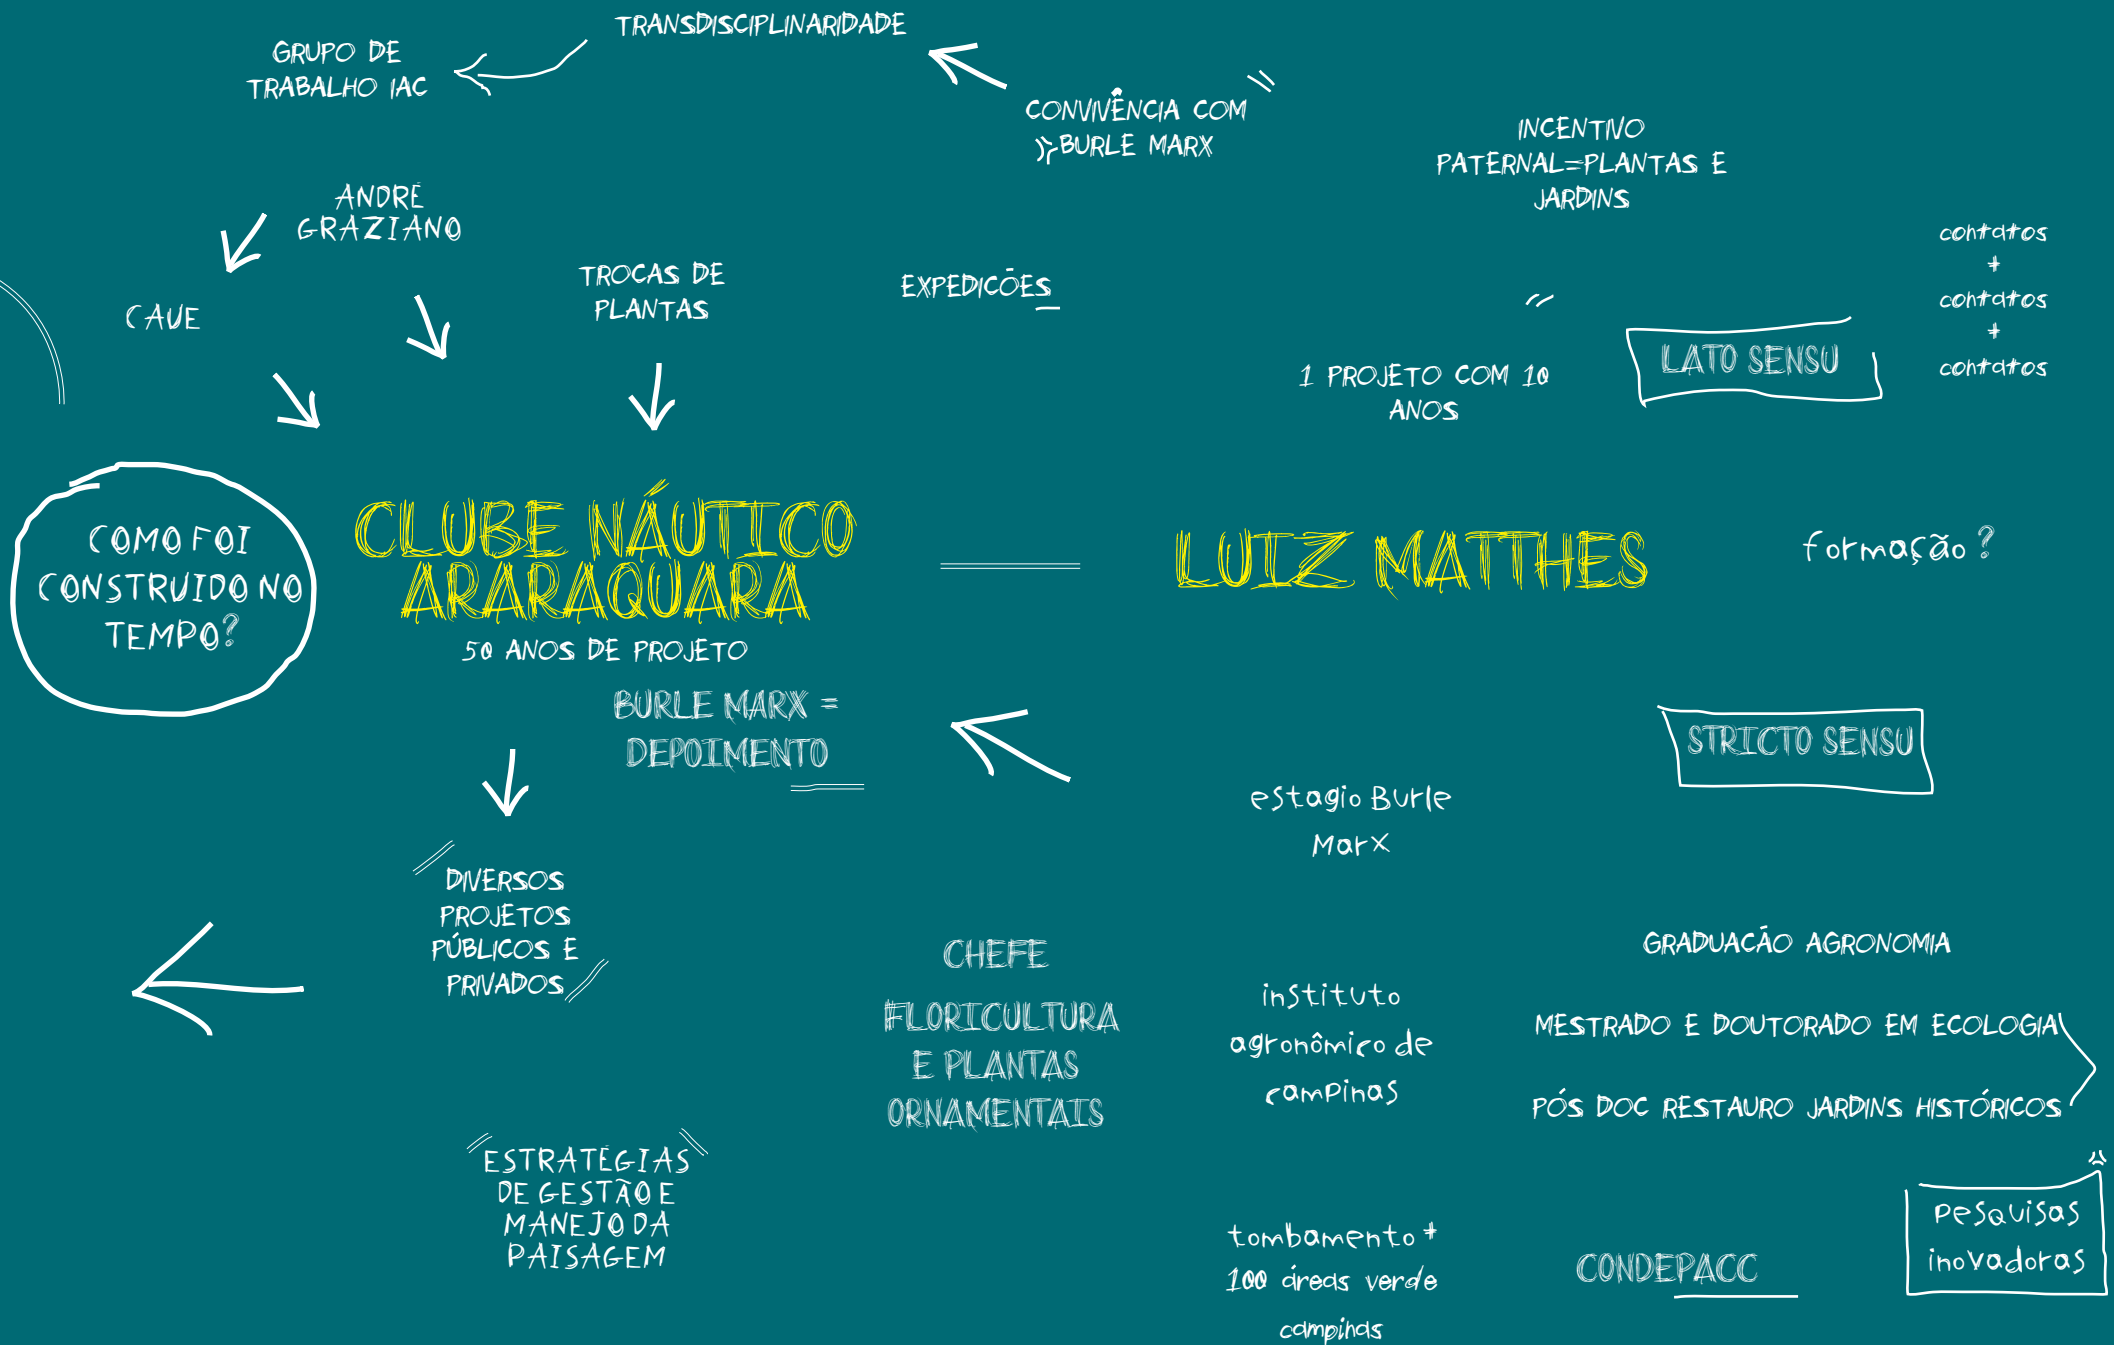 TRANSDISCIPLINARIDADE
GRUPO DE
TRABALHO IAC
CONVIVÊNCIA COM
BURLE MARX
INCENTIVO
PATERNAL=PLANTAS E
JARDINS
ANDRÉ
GRAZIANO
CAUE
TROCAS DE
PLANTAS
EXPEDICÕES
contatos
+
contatos
+
contatos
1 PROJETO COM 10
ANOS
LATO SENSU
COMO FOI
CONSTRUIDO NO
TEMPO?
CLUBE NÁUTICO
ARARAQUARA
50 ANOS DE PROJETO
BURLE MARX =
DEPOIMENTO
LUIZ MATTHES
formação?
STRICTO SENSU
estagio Burle
Marx
DIVERSOS
PROJETOS
PÚBLICOS E
PRIVADOS
CHEFE
FLORICULTURA
E PLANTAS
ORNAMENTAIS
instituto
agronômico de
campinas
GRADUACÃO AGRONOMIA
MESTRADO E DOUTORADO EM ECOLOGIA
PÓS DOC RESTAURO JARDINS HISTÓRICOS
ESTRATÉGIAS
DE GESTÃO E
MANEJO DA
PAISAGEM
tombamento +
100 áreas verde
campinas
CONDEPACC
pesquisas
inovadoras